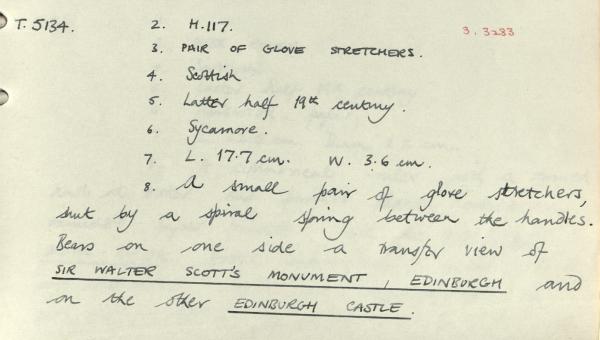 T. 5134. 2. H.117. 3. 3233
3. PAIR OF GLOVE STRETCHERS.
4. Scottish
5. Latter half 19th century.
6. Sycamore.
7. L. 17.7 cm. W. 3.6 cm.
8. A small pair of glove stretchers,
shut by a spiral spring between the handles.
Bears on one side a transfer view of
SIR WALTER SCOTT'S MONUMENT, EDINBURGH and
on the other EDINBURGH CASTLE.